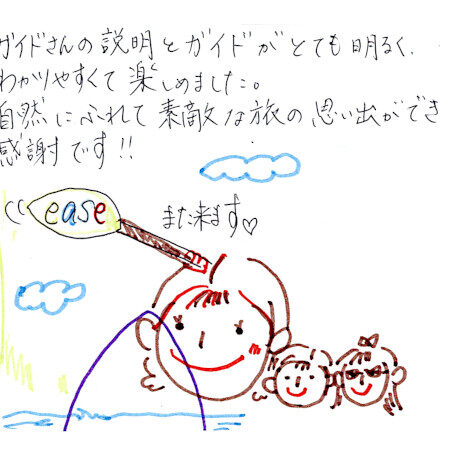 ガイドさんの説明とガイドがとても明るく、
わかりやすくて楽しめました。
自然にふれて素敵な旅の思い出ができ
感謝です!!
ease
また来ます♡